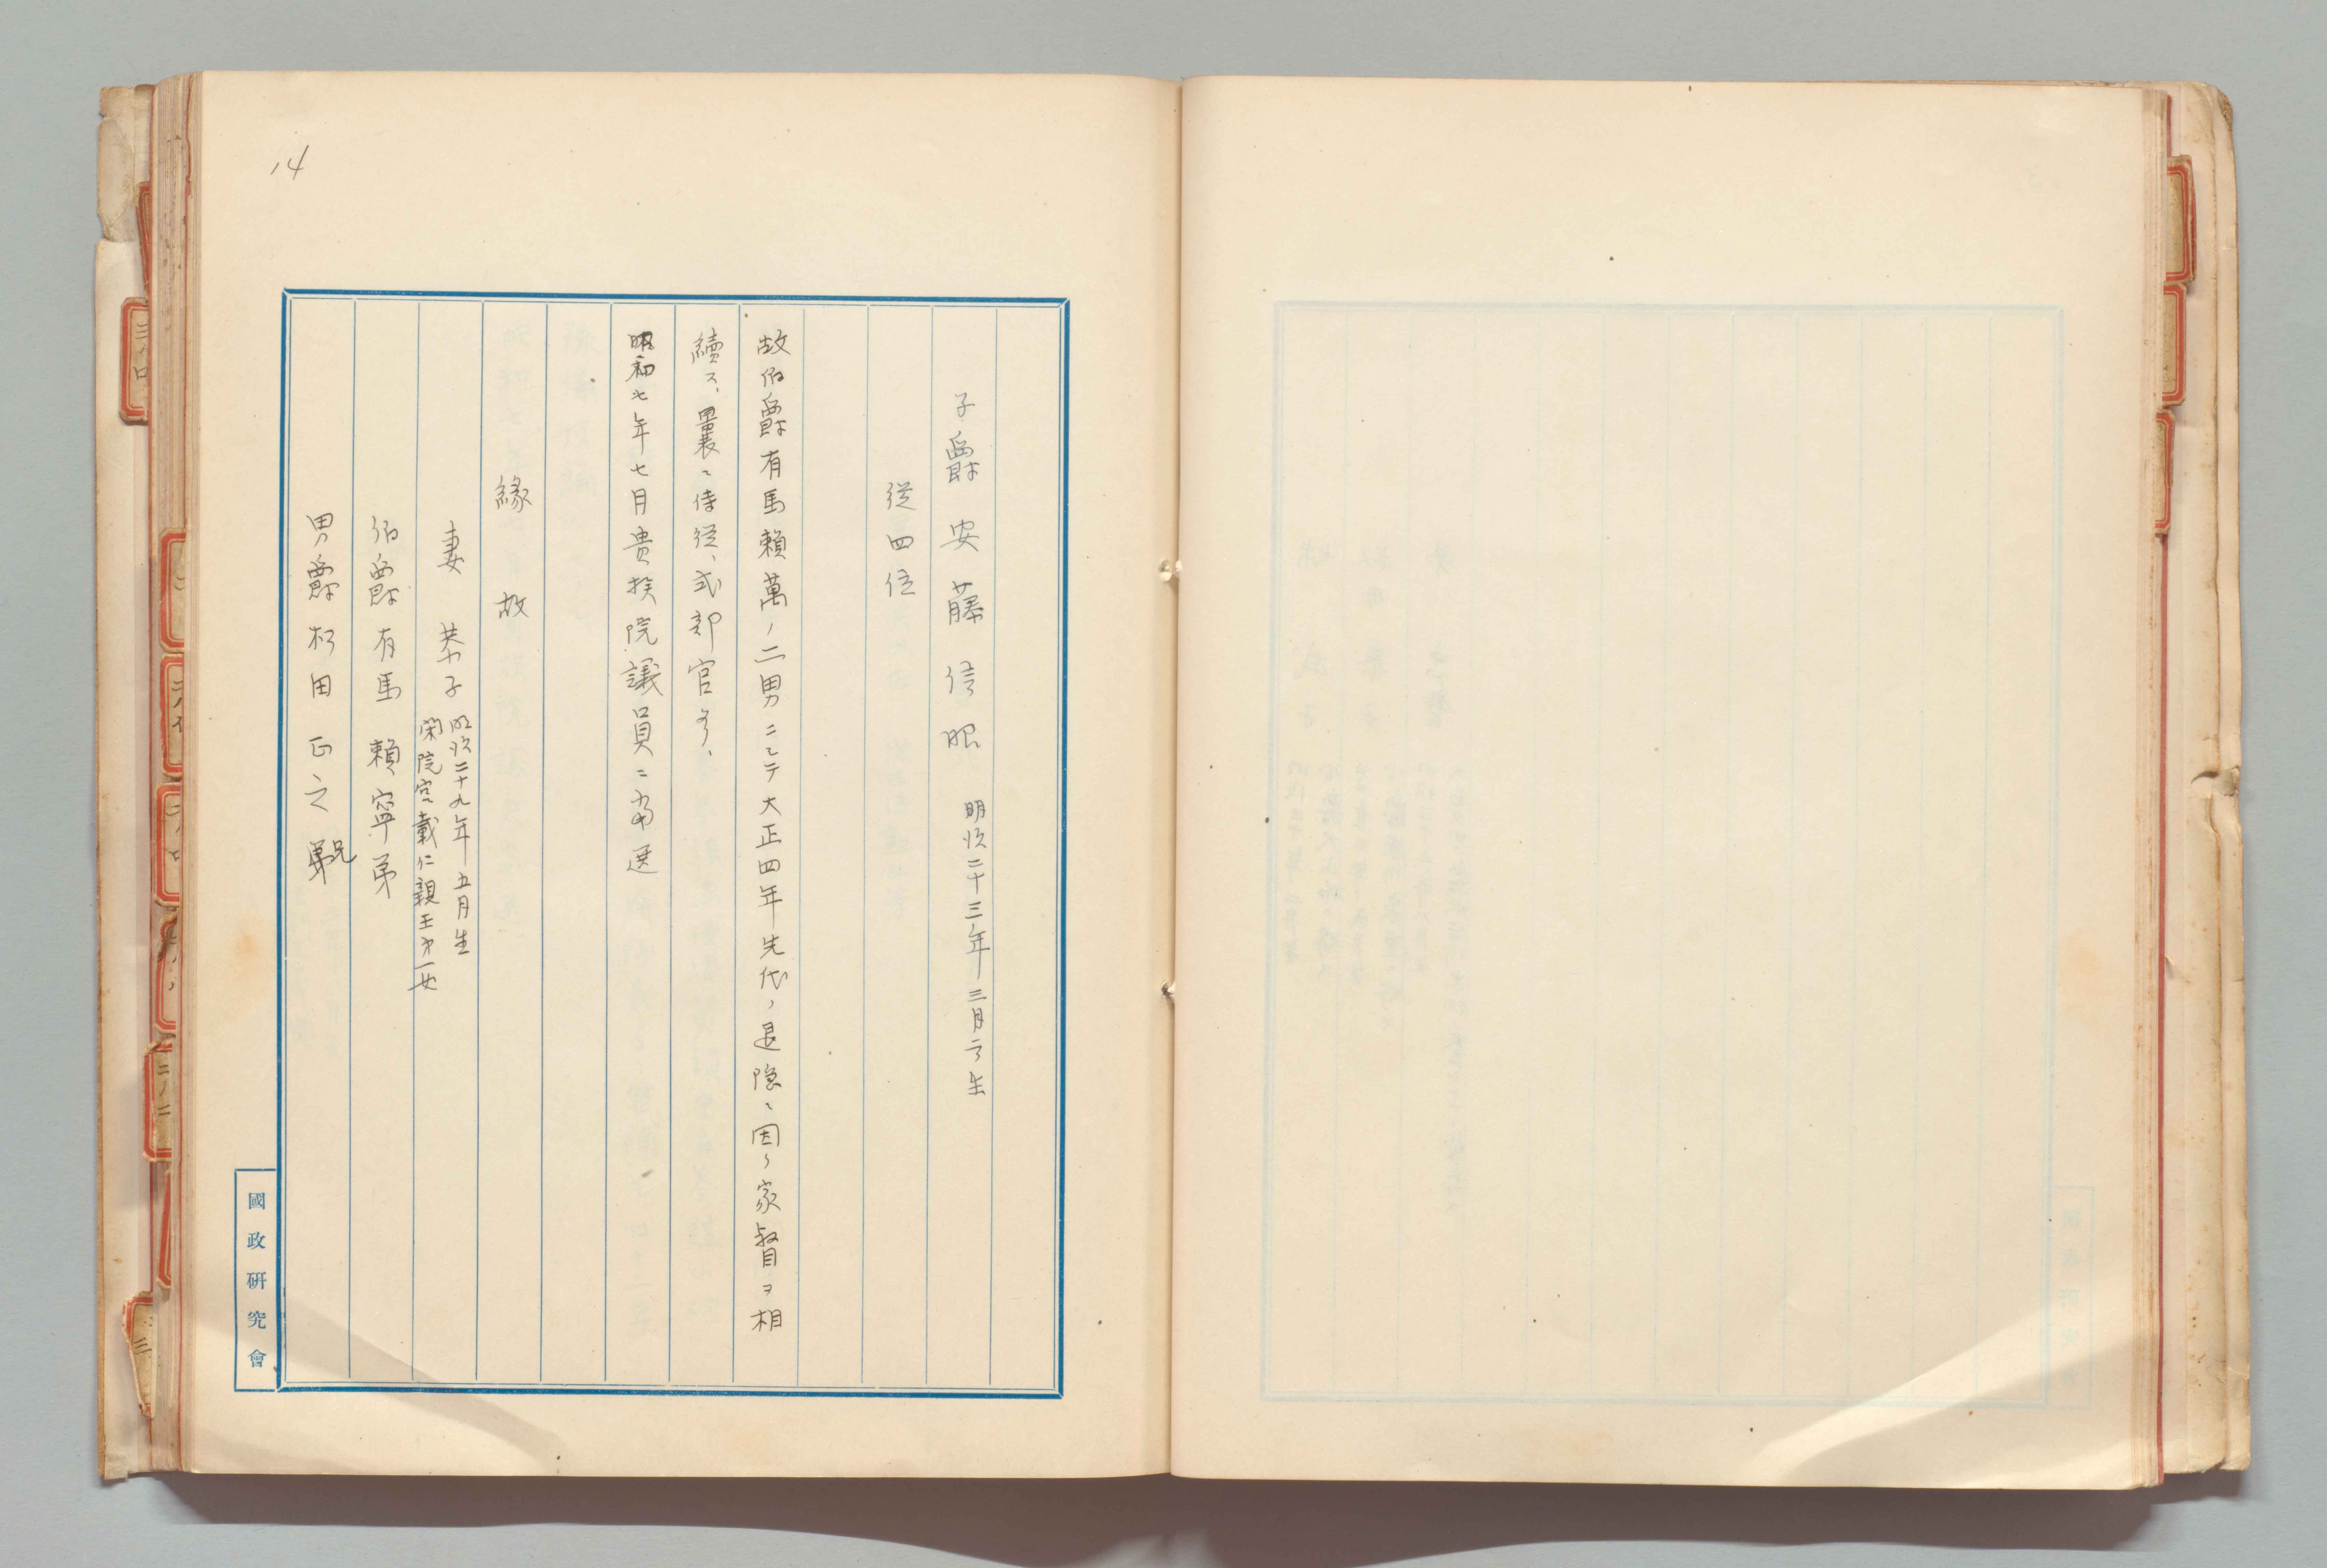 14
子爵 安藤信昭 明治二十三年三月 生
從四位
故伯爵有馬賴萬ノ二男ニシテ大正四年先代ノ退隠ニ因リ家督ヲ相
續ス、曩ニ侍従、式部官タリ、
昭和七年七月貴族院議員ニ當選
縁故
妻 恭子 明治二十九年五月生
閑院宮載仁親王第一女
伯爵有馬賴寧弟
男爵松田正之兄
國政研究會